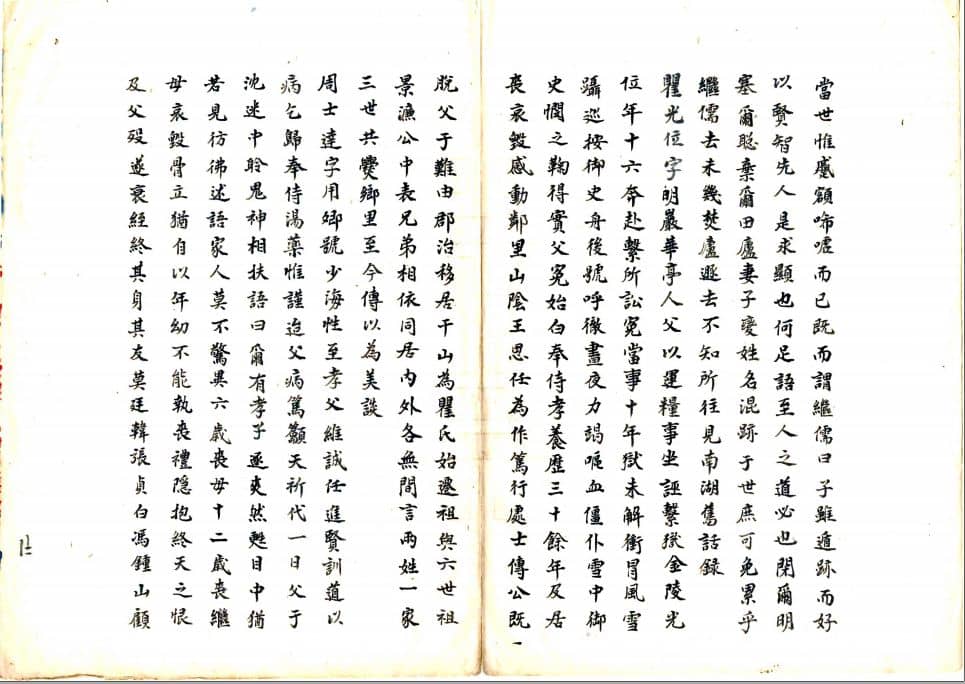 當世惟蹙額啼嘘而已既而謂繼儒曰子雖遁跡而好
以賢智先人是求顯也何足語至人之道必也閉爾明
塞爾聰棄爾田廬妻子變姓名混跡于世庶可免累乎
繼儒去未幾焚廬遯去不知所往見南湖舊話録
瞿光位字明巖華亭人父以運糧事坐誣繫獄金陵光
位年十六奔赴繫所訟冤當事十年獄未解衝冒風雪
躡巡按御史舟後號呼徹晝夜力竭嘔血僵仆雪中御
史憫之鞠得實父冤始白奉侍孝養歷三十餘年及居
喪哀毀感動鄰里山陰王思任為作篤行處士傳公既
脫父于難由郡治移居干山為瞿氏始遷祖與六世祖
景濂公中表兄弟相依同居內外各無間言兩姓一家
三世共爨鄉里至今傳以為美談
周士達字用卿號少海性至孝父維誠任進賢訓道以
病乞歸奉侍湯藥惟謹迨父病篤籲天祈代一日父于
沈迷中聆鬼神相扶語曰爾有孝子遂爽然甦目中猶
若見彷彿述語家人莫不驚異六歲喪母十二歲喪繼
母哀毀骨立猶自以年幼不能執喪禮隱抱終天之恨
及父歿遂衰絰終其身其友莫廷韓張貞白馮鍾山顧